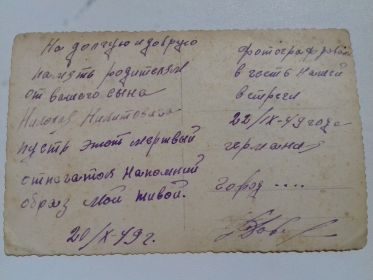 На долгую и добрую
память родителям
от вашего сына
Николая Никитовича
пусть этот мертвый
отпечаток напомнит
образ мой живой.
20/X-49 г.
фотографировал
в честь нашей
встречи
22/IX-49 года
германия
город ....